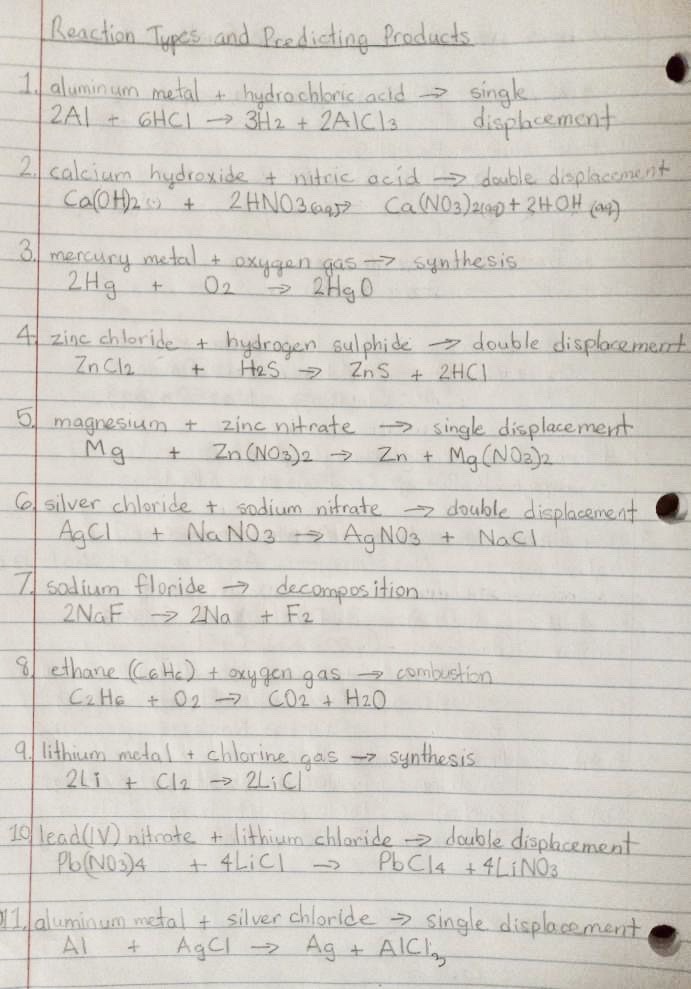 Reaction Types and Predicting Products
1. aluminum metal + hydrochloric acid → single
2Al + 6HCl → 3H2 + 2AlCl3 displacement
2. calcium hydroxide + nitric acid → double displacement
Ca(OH)2 + 2HNO3(aq) → Ca(NO3)2(aq) + 2HOH (aq)
3. mercury metal + oxygen gas → synthesis
2Hg + O2 → 2HgO
4. zinc chloride + hydrogen sulphide → double displacement
ZnCl2 + H2S → ZnS + 2HCl
5. magnesium + zinc nitrate → single displacement
Mg + Zn(NO3)2 → Zn + Mg(NO3)2
6. silver chloride + sodium nitrate → double displacement
AgCl + NaNO3 → AgNO3 + NaCl
7. sodium floride → decomposition
2NaF → 2Na + F2
8. ethane (C6H6) + oxygen gas → combustion
C2H6 + O2 → CO2 + H2O
9. lithium metal + chlorine gas → synthesis
2Li + Cl2 → 2LiCl
10. lead(IV) nitrate + lithium chloride → double displacement
Pb(NO3)4 + 4LiCl → PbCl4 + 4LiNO3
11. aluminum metal + silver chloride → single displacement
Al + AgCl → Ag + AlCl3